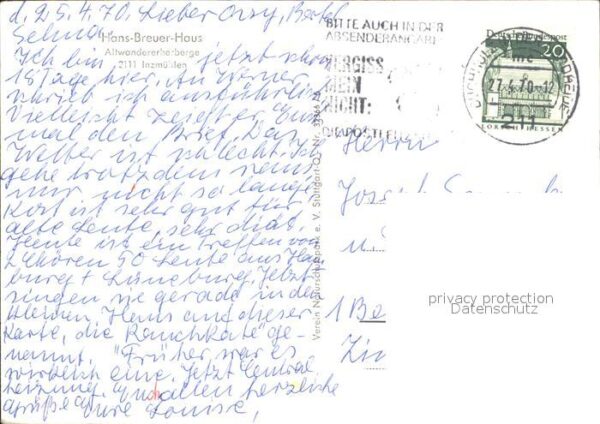 d. 25.4.70. Lieber Ossy, Bertel
Selma
Hans-Breuer-Haus
Altwandererherberge
2111 Inzmühlen
Ich bin jetzt schon
18 Tage hier. An Werner
schrieb ich ausführlich
Vielleicht zeigt er Euch
mal den Brief. Das
Wetter ist schlecht. Ich
gehe trotzdem raus
nur nicht so lange
Kost ist sehr gut für
alte Leute, sehr diät.
Heute ist ein Treffen von
2 Chören 50 Leute aus Ham
burg + Lüneburg. Jetzt
singen sie gerade in dem
kleinen Haus auf dieser
Karte, die "Rauchkate" ge-
nannt. "Früher war es
wirklich eine. Jetzt Central
heizung. Euch allen herzliche
Grüße Eure Louise,
Verein Naturschutzpark e. V. Stuttgart
BITTE AUCH IN DER
ABSENDERANGABE
VERGISS
MEIN
NICHT:
DIE POSTLEITZAHL
27.4.70-12
211
Deutsche Bundespost
20
LORSCH HESSEN
Herrn
Josef
privacy protection
Datenschutz